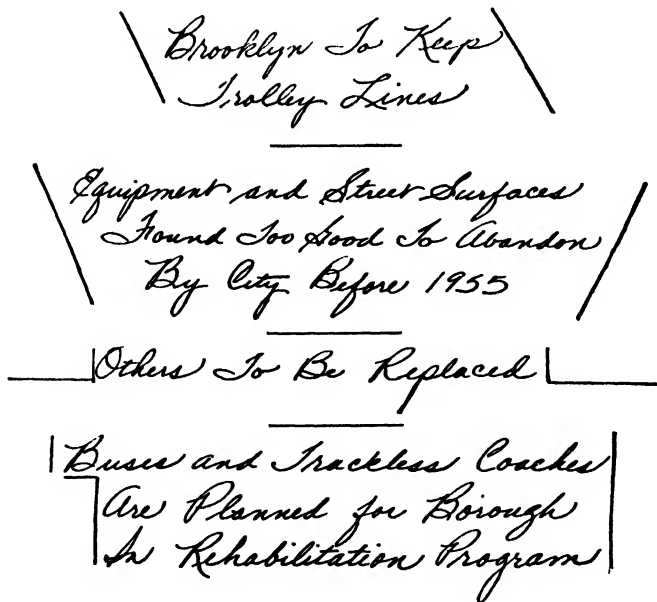 Brooklyn To Keep
Trolley Lines
Equipment and Street Surfaces
Found Too Good To Abandon
By City Before 1955
Others To Be Replaced
Buses and Trackless Coaches
Are Planned for Borough
In Rehabilitation Program